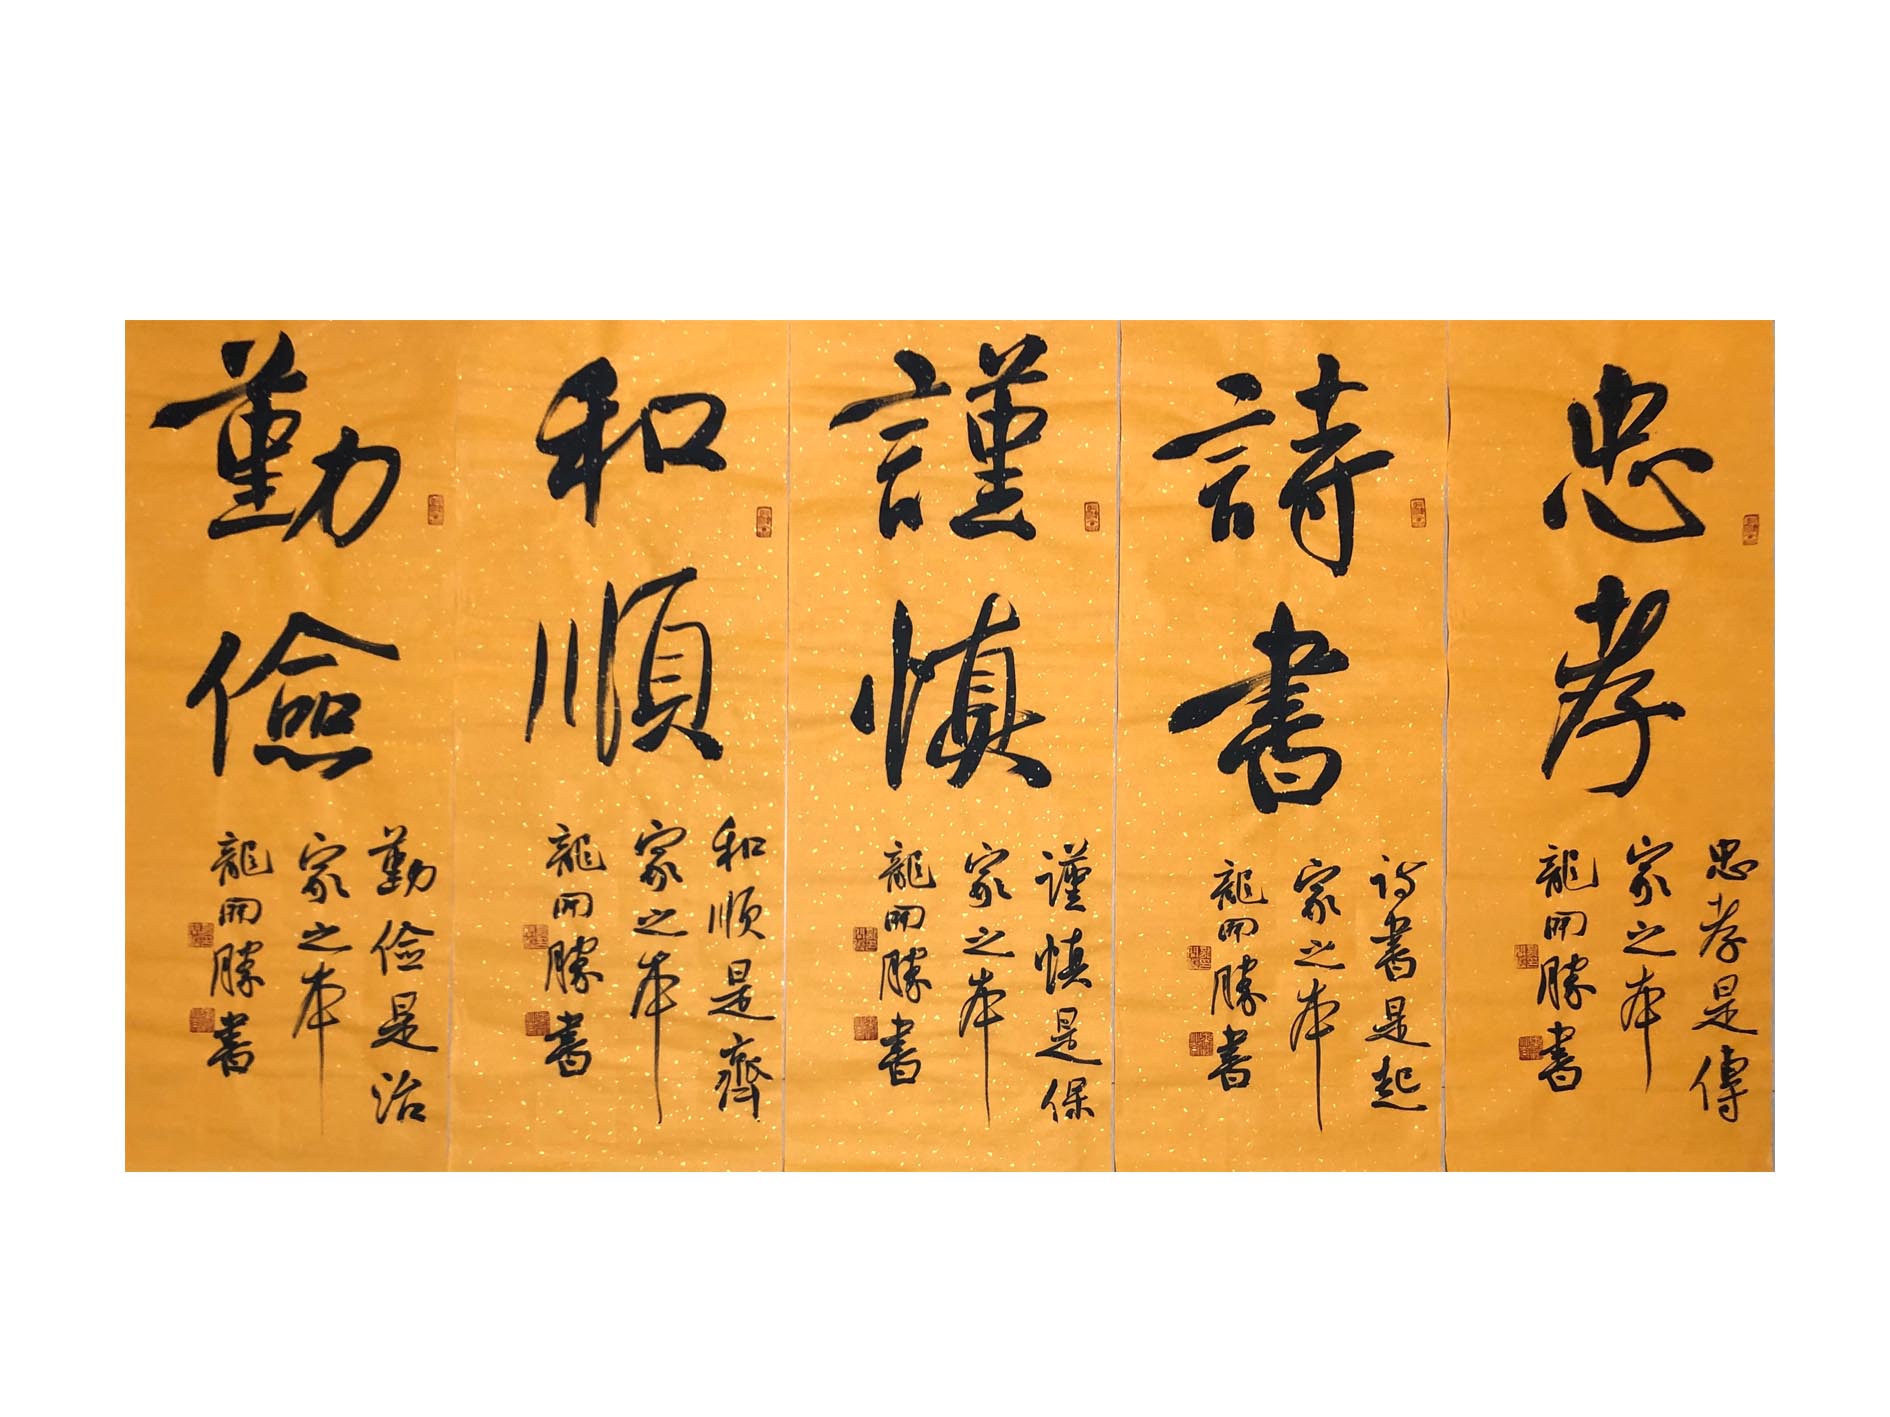 忠孝
忠孝是傳
家之本
龍開勝書
詩書
詩書是起
家之本
龍開勝書
謹慎
謹慎是保
家之本
龍開勝書
和順
和順是齊
家之本
龍開勝書
勤儉
勤儉是治
家之本
龍開勝書